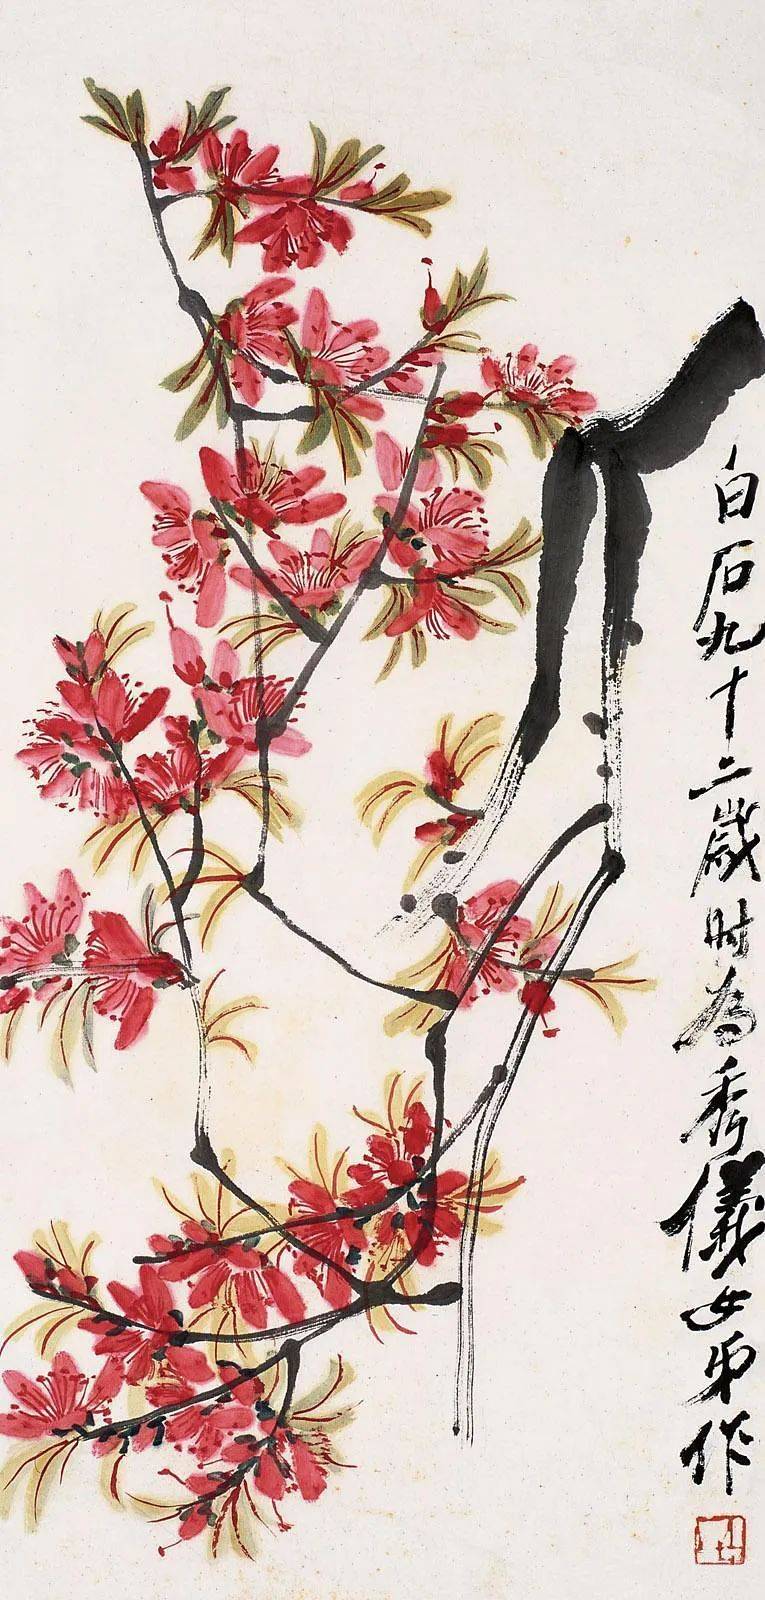 白石九十二歲时为秀儀女弟作